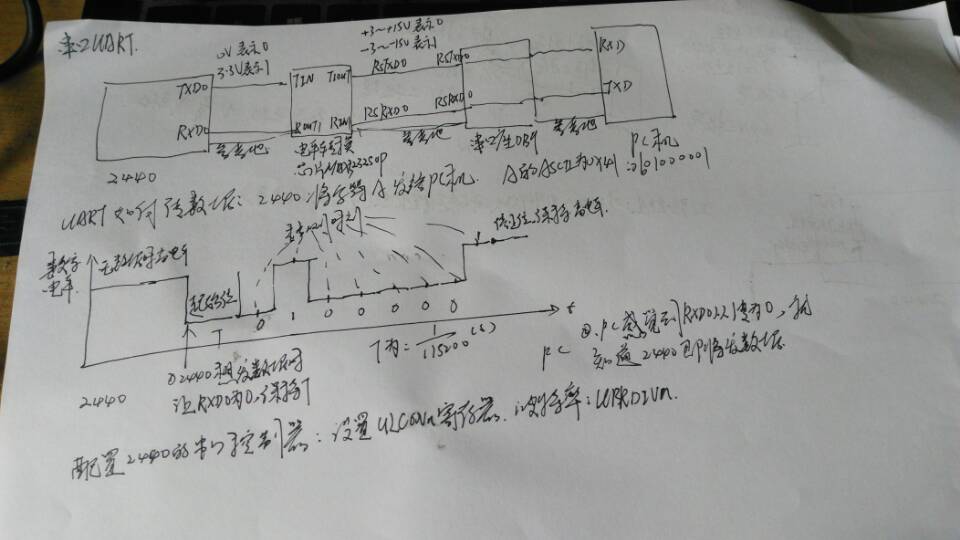 串口UART.
0V表示0
3.3V表示1
+3~+15V表示0
-3~-15V表示1
TXD0
TIN
T1OUT
RSTXD0
RSTXD0
RXD
RXD0
ROUT1
RIN
RSRXD0
RSRXD0
TXD
2440
参考地
电平转换
芯片
参考地
串口座DB9
参考地
PC机
UART如何传数据: 2440将字符A发给PC机. A的ASCII为0X41:0b01000001
数字
电平
无数据时高电平
起始位
停止位,保持高电平
0 1 0 0 0 0 0
t
T
T为: 1/115200 (s)
2440
①2440想发数据时
让RXD0为0,保持T
PC
②PC感觉到RXD0变为0,就
知道2440即将发数据
配置2440的串口控制器: 设置ULCONn寄存器. 波特率: UBRDIVn.